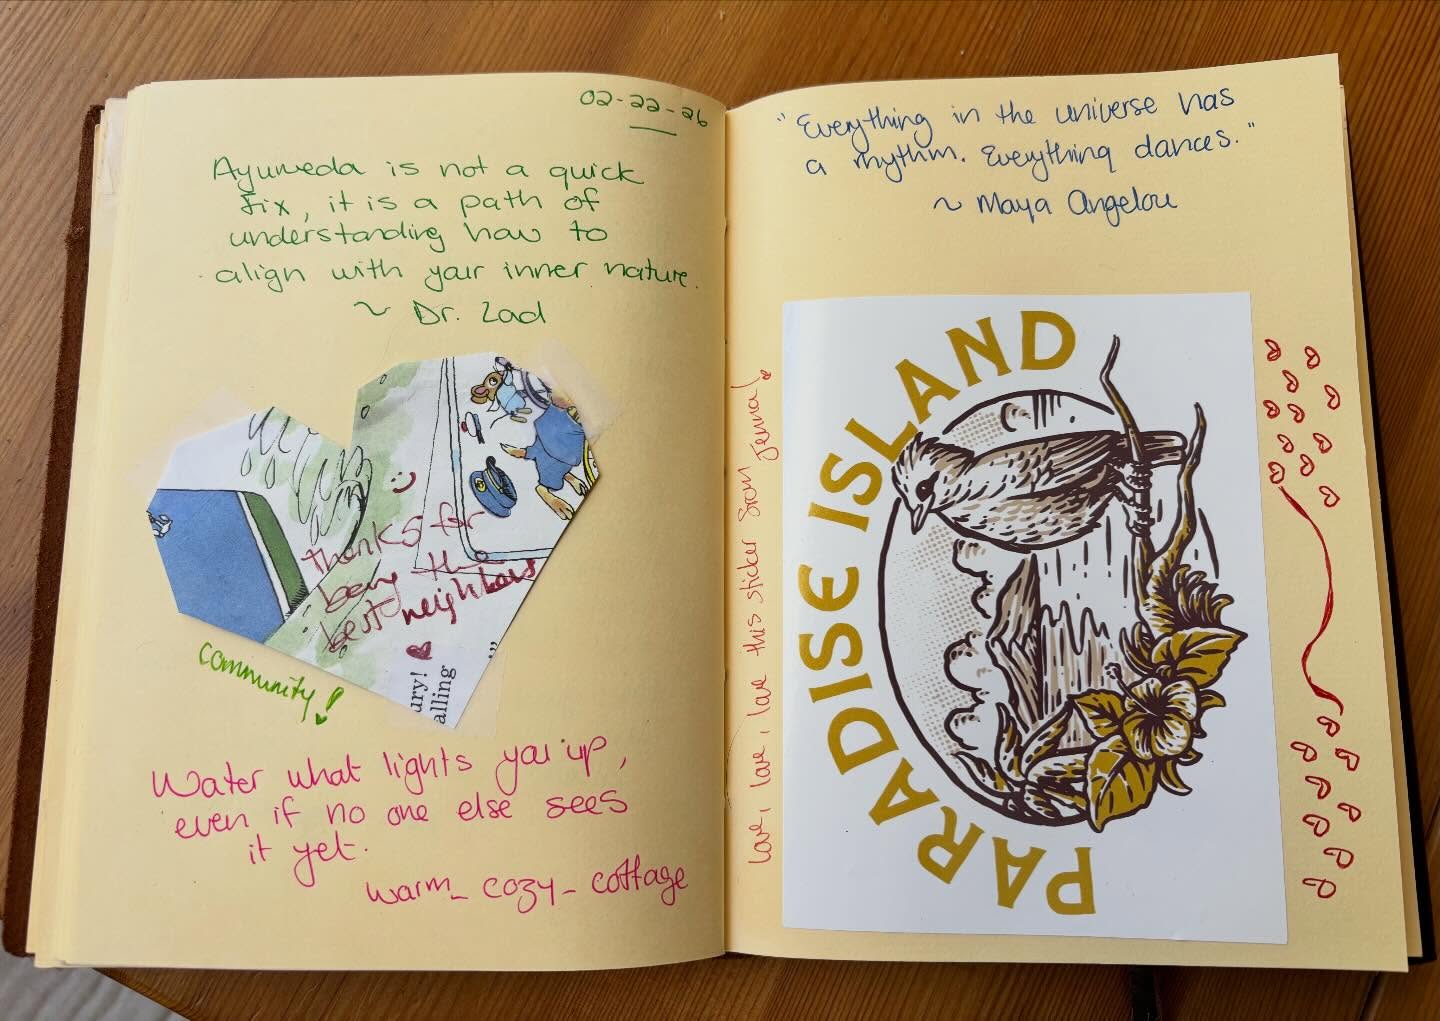 02-22-26
Ayurveda is not a quick
fix, it is a path of
understanding how to
align with your inner nature.
~ Dr. Zad
thanks for
being the
best neighbors
ury!
alling
community!
Water what lights you up,
even if no one else sees
it yet.
warm_cozy_cottage
"Everything in the universe has
a rhythm. Everything dances."
~ Maya Angelou
love, love, love this sticker from Jenna!
PARADISE ISLAND